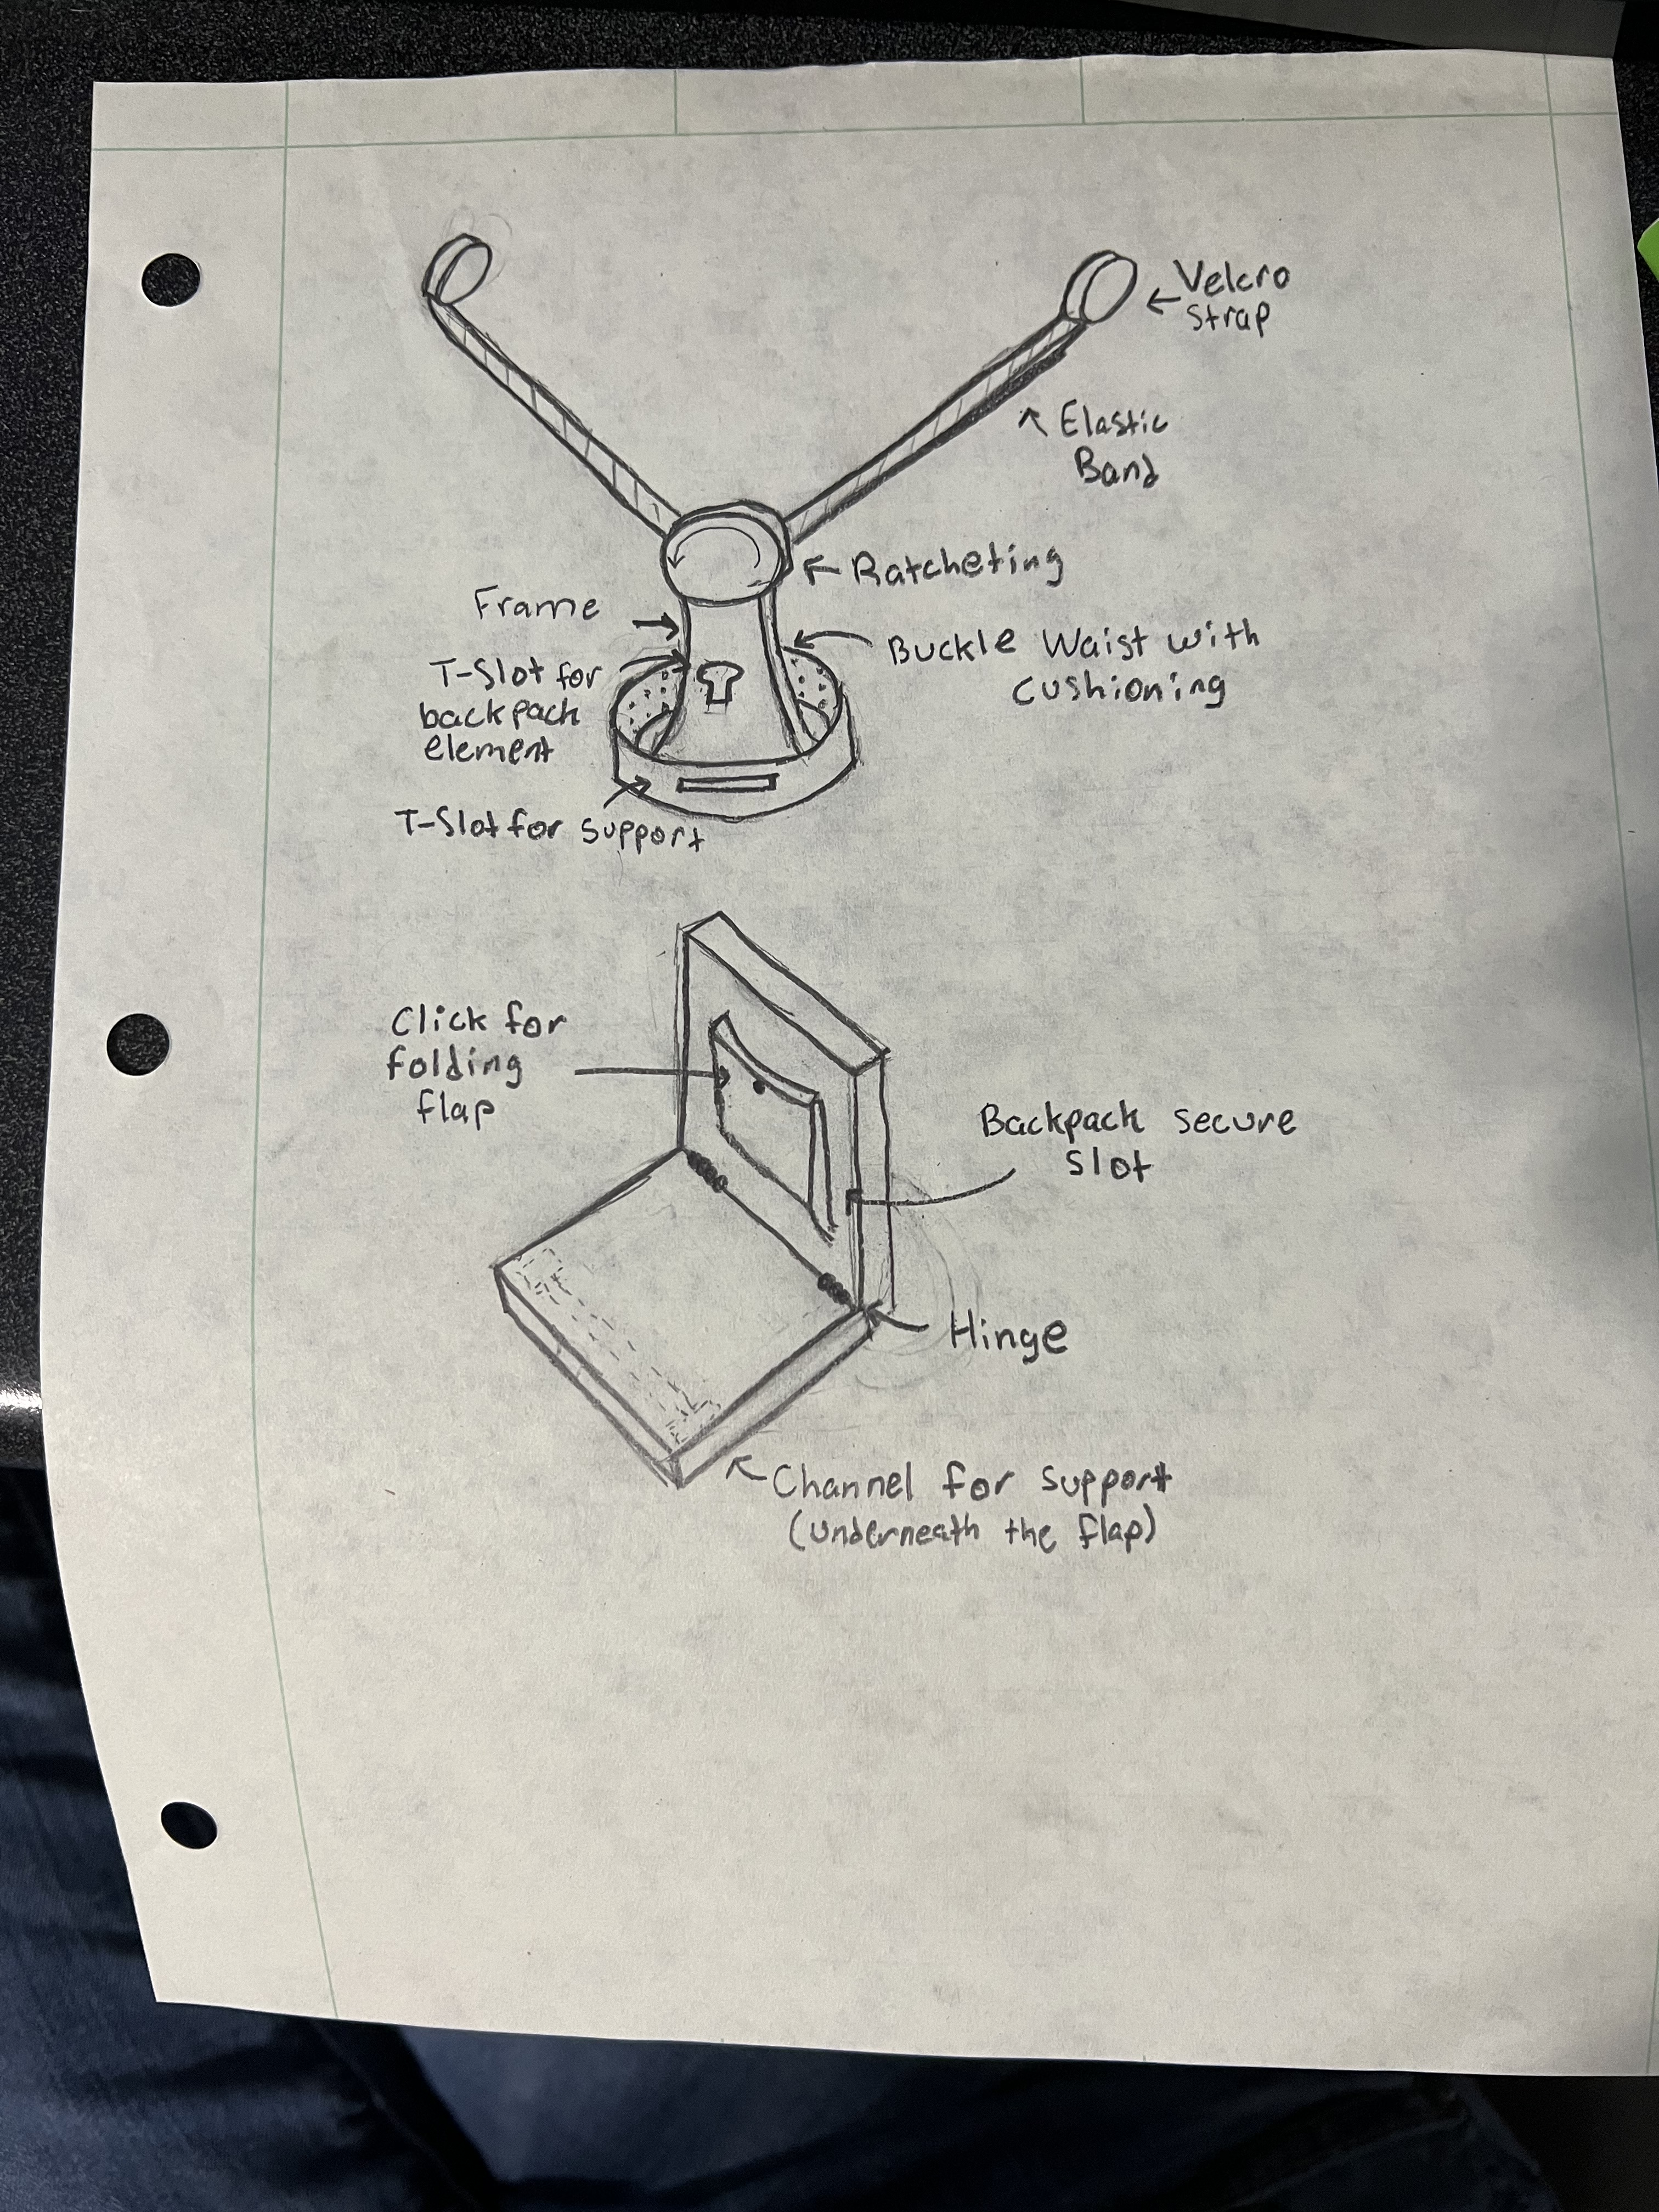 Velcro
strap
Elastic
Band
Ratcheting
Frame
Buckle Waist with
cushioning
T-Slot for
backpack
element
T-Slot for support
Click for
folding
flap
Backpack secure
slot
Hinge
Channel for support
(underneath the flap)